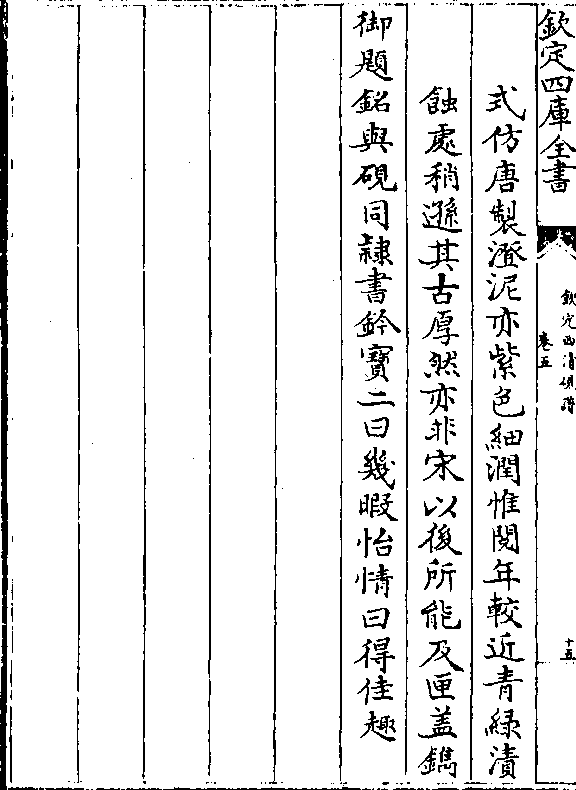 欽定四庫全書
欽定西清硯譜
卷五
十五
式仿唐製澄泥亦紫色細潤惟閱年較近青綠漬
蝕處稍遜其古厚然亦非宋以後所能及匣盖鐫
御題銘與硯同隷書鈐寶二曰幾暇怡情曰得佳趣